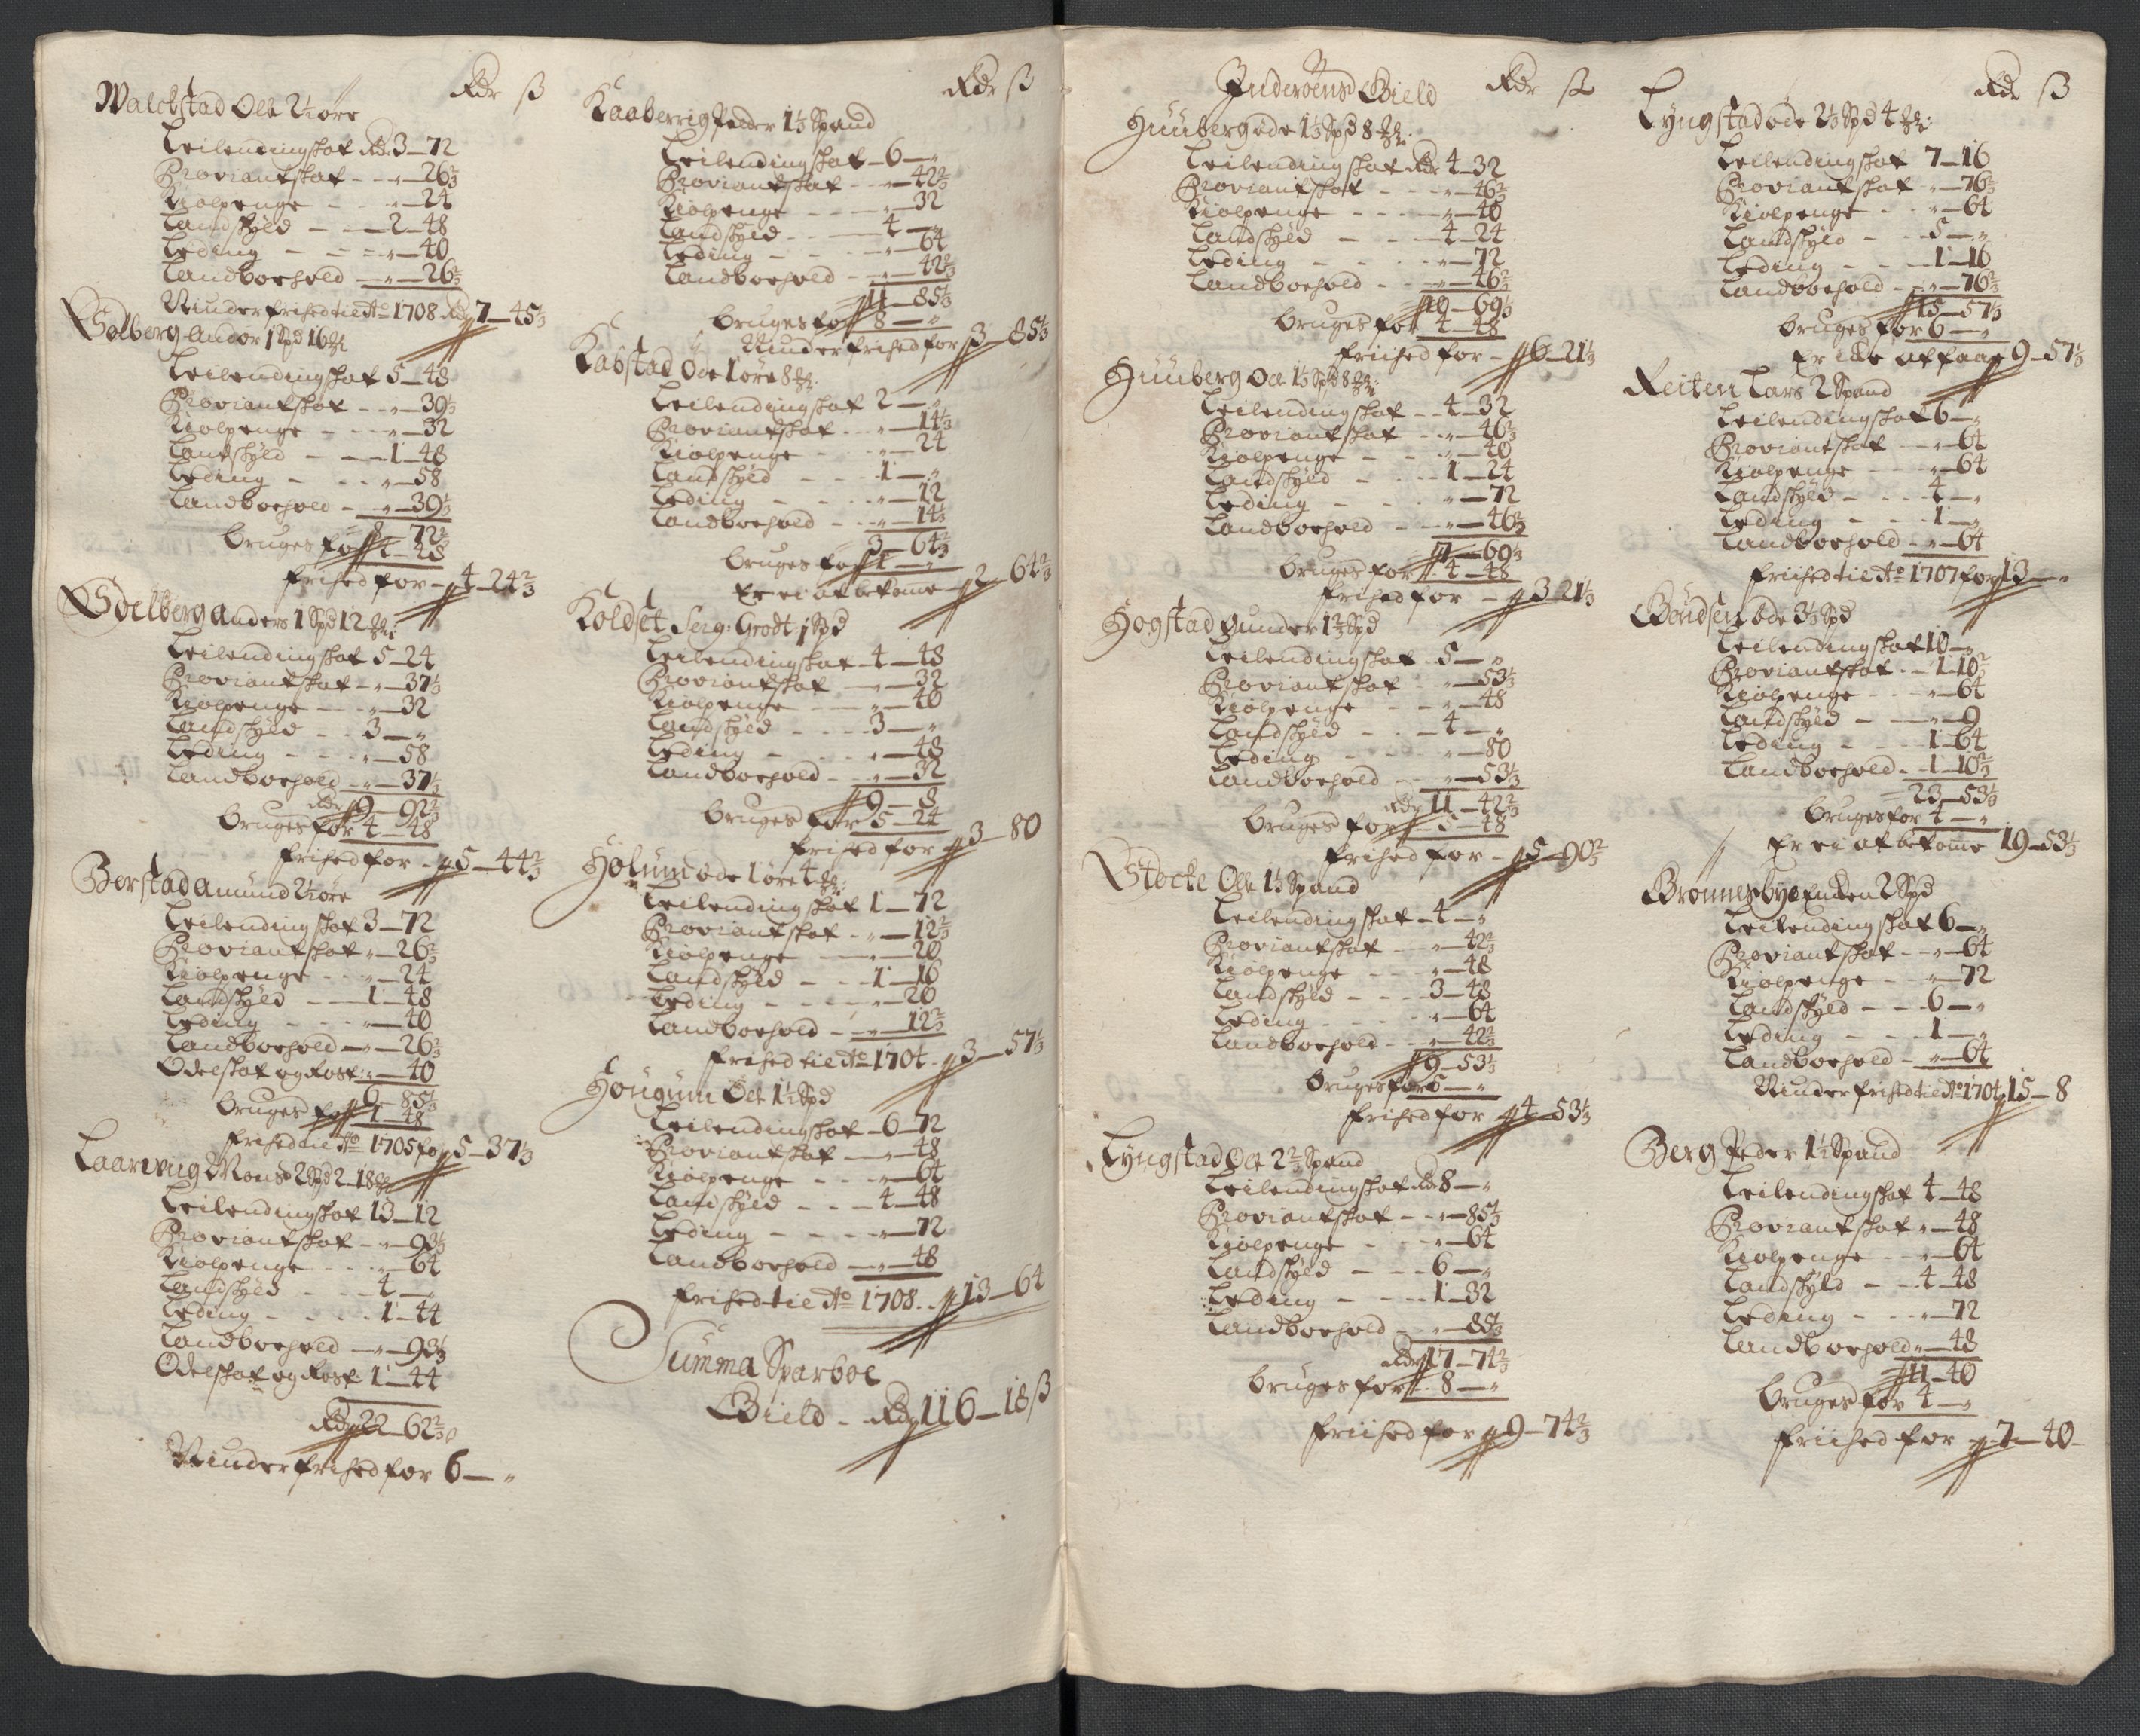 Rdr ß
Walchstad Ole 2½ øre
Leilendingskat Rdr 3 — 72
Proviantskat - - „ — 26⅔
Kiølpenge - - „ — 24
Landskyld - - 2 — 48
Leding - - „ — 40
Landboehold - „ — 26⅔
Niuder frihed til Ao 1708 Rdr 7 — 45⅓
Solberg Andor 1 Spd 16 mkl
Leilendingskat 5 — 48
Proviantskat - - „ — 39⅓
Kiølpenge - - „ — 32
Landskyld - - 1 — 48
Leding - - - „ — 58
Landboehold - „ — 39⅓
8 — 72⅔
bruges for 4 — 48
frihed for - 4 — 24⅔
Sdelberg Anders 1 Spd 12 mkl:
Leilendingskat 5 — 24
Proviantskat - „ — 37⅓
Kiølpenge - - „ — 32
Landskyld - - 3 — „
Leding - - - „ — 58
Landboehold - „ — 37⅓
Rdr 9 — 92⅔
bruges for 4 — 48
frihed for - 5 — 44⅔
Berstad Amund 2½ øre
Leilendingskat 3 — 72
Proviantskat - „ — 26⅔
Kiølpenge - - „ — 24
Landskyld - - 1 — 48
Leding - - - „ — 40
Landboehold - „ — 26⅔
Odelskat og Rost: „ — 40
6 — 85⅓
bruges for 1 — 48
frihed til Ao 1705 for 5 — 37⅓
Laarwiig Mons 2 Spd 2 - 18 mkl
Leilendingskat 13 — 12
Proviantskat - - „ — 93⅓
Kiølpenge - - - „ — 64
Landskyld - - - 4 — „
Leding - - - - 1 — 44
Landboehold - „ — 93⅓
Odelskat og Rost: 1 — 44
Rdr 22 — 62⅔
Niuder frihed for 6 — „
Rdr ß
Kaaberrig Peder 1⅓ Spand
Leilendingskat - 6 — „
Proviantskat - - „ — 42⅔
Kiølpenge - - - „ — 32
Landskyld - - - 4 — „
Leding - - - - „ — 64
Landboehold - „ — 42⅔
11 — 85⅓
bruges for 8 — „
Niuder frihed for 3 — 85⅓
Kabstad Ode 1 øre 8 mkl:
Leilendingskat 2 — „
Proviantskat - - „ — 14⅓
Kiølpenge - - „ — 24
Landskyld - - - 1 — „
Leding - - - - „ — 12
Landboehold - - „ — 14⅓
3 — 64⅔
bruges for 1 — „
Er ei at bekome 2 64⅔
Koldset Serg: Grodt 1 Spd
Leilendingskat - 4 — 48
Proviantskat - „ — 32
Kiølpenge - - „ — 40
Landskyld - - - 3 — „
Leding - - - „ — 48
Landboehold - - „ — 32
9 — 8
bruges for 5 — 24
frihed for 3 — 80
Holum øde 1 øre 4 mkl:
Leilendingskat 1 — 72
Proviantskat - - „ — 12⅔
Kiølpenge - - „ — 20
Landskyld - - - 1 — 16
Leding - - - - „ — 20
Landboehold - - „ — 12⅔
frihed til Ao 1704 - 3 — 57⅓
Hougum Ole 1½ Spd
Leilendingskat - 6 — 72
Proviantskat - - „ — 48
Kiølpenge - - - „ — 64
Landskyld - - - 4 — 48
Leding - - - „ — 72
Landboehold - „ — 48
frihed til Ao 1708 - - 13 — 64
Summa Sparboe
Gield - Rdr 116 — 18 ß
Inderøens Gield Rdr ß
Huuberg øde 1⅓ Spd 8 mkl:
Leilendingskat Rdr 4 — 32
Proviantskat - - - „ — 46⅔
Kiølpenge - - - „ — 40
Landskyld - - - 4 — 24
Leding - - - „ — 72
Landboehold - - „ — 46⅔
10 — 69⅓
bruges for 4 — 48
friihed for - 6 — 21⅓
Huuberg Ole 1⅓ Spd 8 mkl:
Leilendingskat - - 4 — 32
Proviantskat - - „ — 46⅔
Kiølpenge - - - „ — 40
Landskyld - - - 1 — 24
Leding - - - „ — 72
Landboehold - - „ — 46⅔
7 — 69⅓
bruges for 4 — 48
frihed for - 3 21⅓
Hogstad Gunder 1⅔ Spd
Leilendingskat - 5 — „
Proviantskat - „ — 53⅓
Kiølpenge - - „ — 48
Landskyld - - - 4 — „
Leding - - - „ — 80
Landboehold - „ — 53⅓
Rdr 11 — 42⅔
bruges for - 5 — 48
frihed for - 5 — 90⅔
Stocke Ole 1⅓ Spand
Leilendingskat - 4 — „
Proviantskat - - „ — 42⅔
Kiølpenge - - - „ — 48
Landskyld - - - 3 — 48
Leding - - - „ — 64
Landboehold - - „ — 42⅔
9 — 53⅓
bruges for 5 — „
friihed for 4 — 53⅓
Lyngstad Ole 2⅔ Spand
Leilendingskat Rdr 8 — „
Proviantskat - - „ — 85⅓
Kiølpenge - - - „ — 64
Landskyld - - - 6 — „
Leding - - - - 1 — 32
Landboehold - - „ — 85⅓
Rdr 17 — 74⅔
bruges for - 8 — „
friihed for 9 — 74⅔
Rdr ß
Lyngstad øde 2⅓ Spd 4 mkl:
Leilendingskat 7 — 16
Proviantskat - „ — 76⅔
Kiølpenge - - „ — 64
Landskyld - - 5 — „
Leding - - - 1 — 16
Landboehold - „ — 76⅔
15 — 57⅓
bruges for 6 — „
Er ikke at faae 9 — 57⅓
Reiten Lars 2 Spand
Leilendingskat 6 — „
Proviantskat - „ — 64
Kiølpenge - - „ — 64
Landskyld - - - 4 — „
Leding - - - 1 — „
Landboehold - „ — 64
friihed til Ao 1707 for 13 — „
Boudsen øde 3⅓ Spd
Leilendingskat 10 — „
Proviantskat - - 1 10⅔
Kiølpenge - - „ — 64
Landskyld - - „ — 9
Leding - - - 1 — 64
Landboehold - - 1 — 10⅔
23 — 53⅓
bruges for 4 — „
Er ei at bekome 19 — 53⅓
Brønnesbye Enken 2 Spd
Leilendingskat 6 — „
Proviantskat - - „ — 64
Kiølpenge - - „ — 72
Landskyld - - 6 — „
Leding - - - 1 — „
Landboehold - „ — 64
Niuder frihed til Ao 1704 15 — 8
Berg Peder 1½ Spand
Leilendingskat 4 — 48
Proviantskat „ — 48
Kiølpenge - - „ — 64
Landskyld - - 4 — 48
Leding - - - „ — 72
Landboehold „ — 48
11 — 40
bruges for 4 — „
friihed for 7 — 40